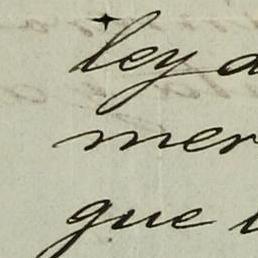 ley a
mer
que